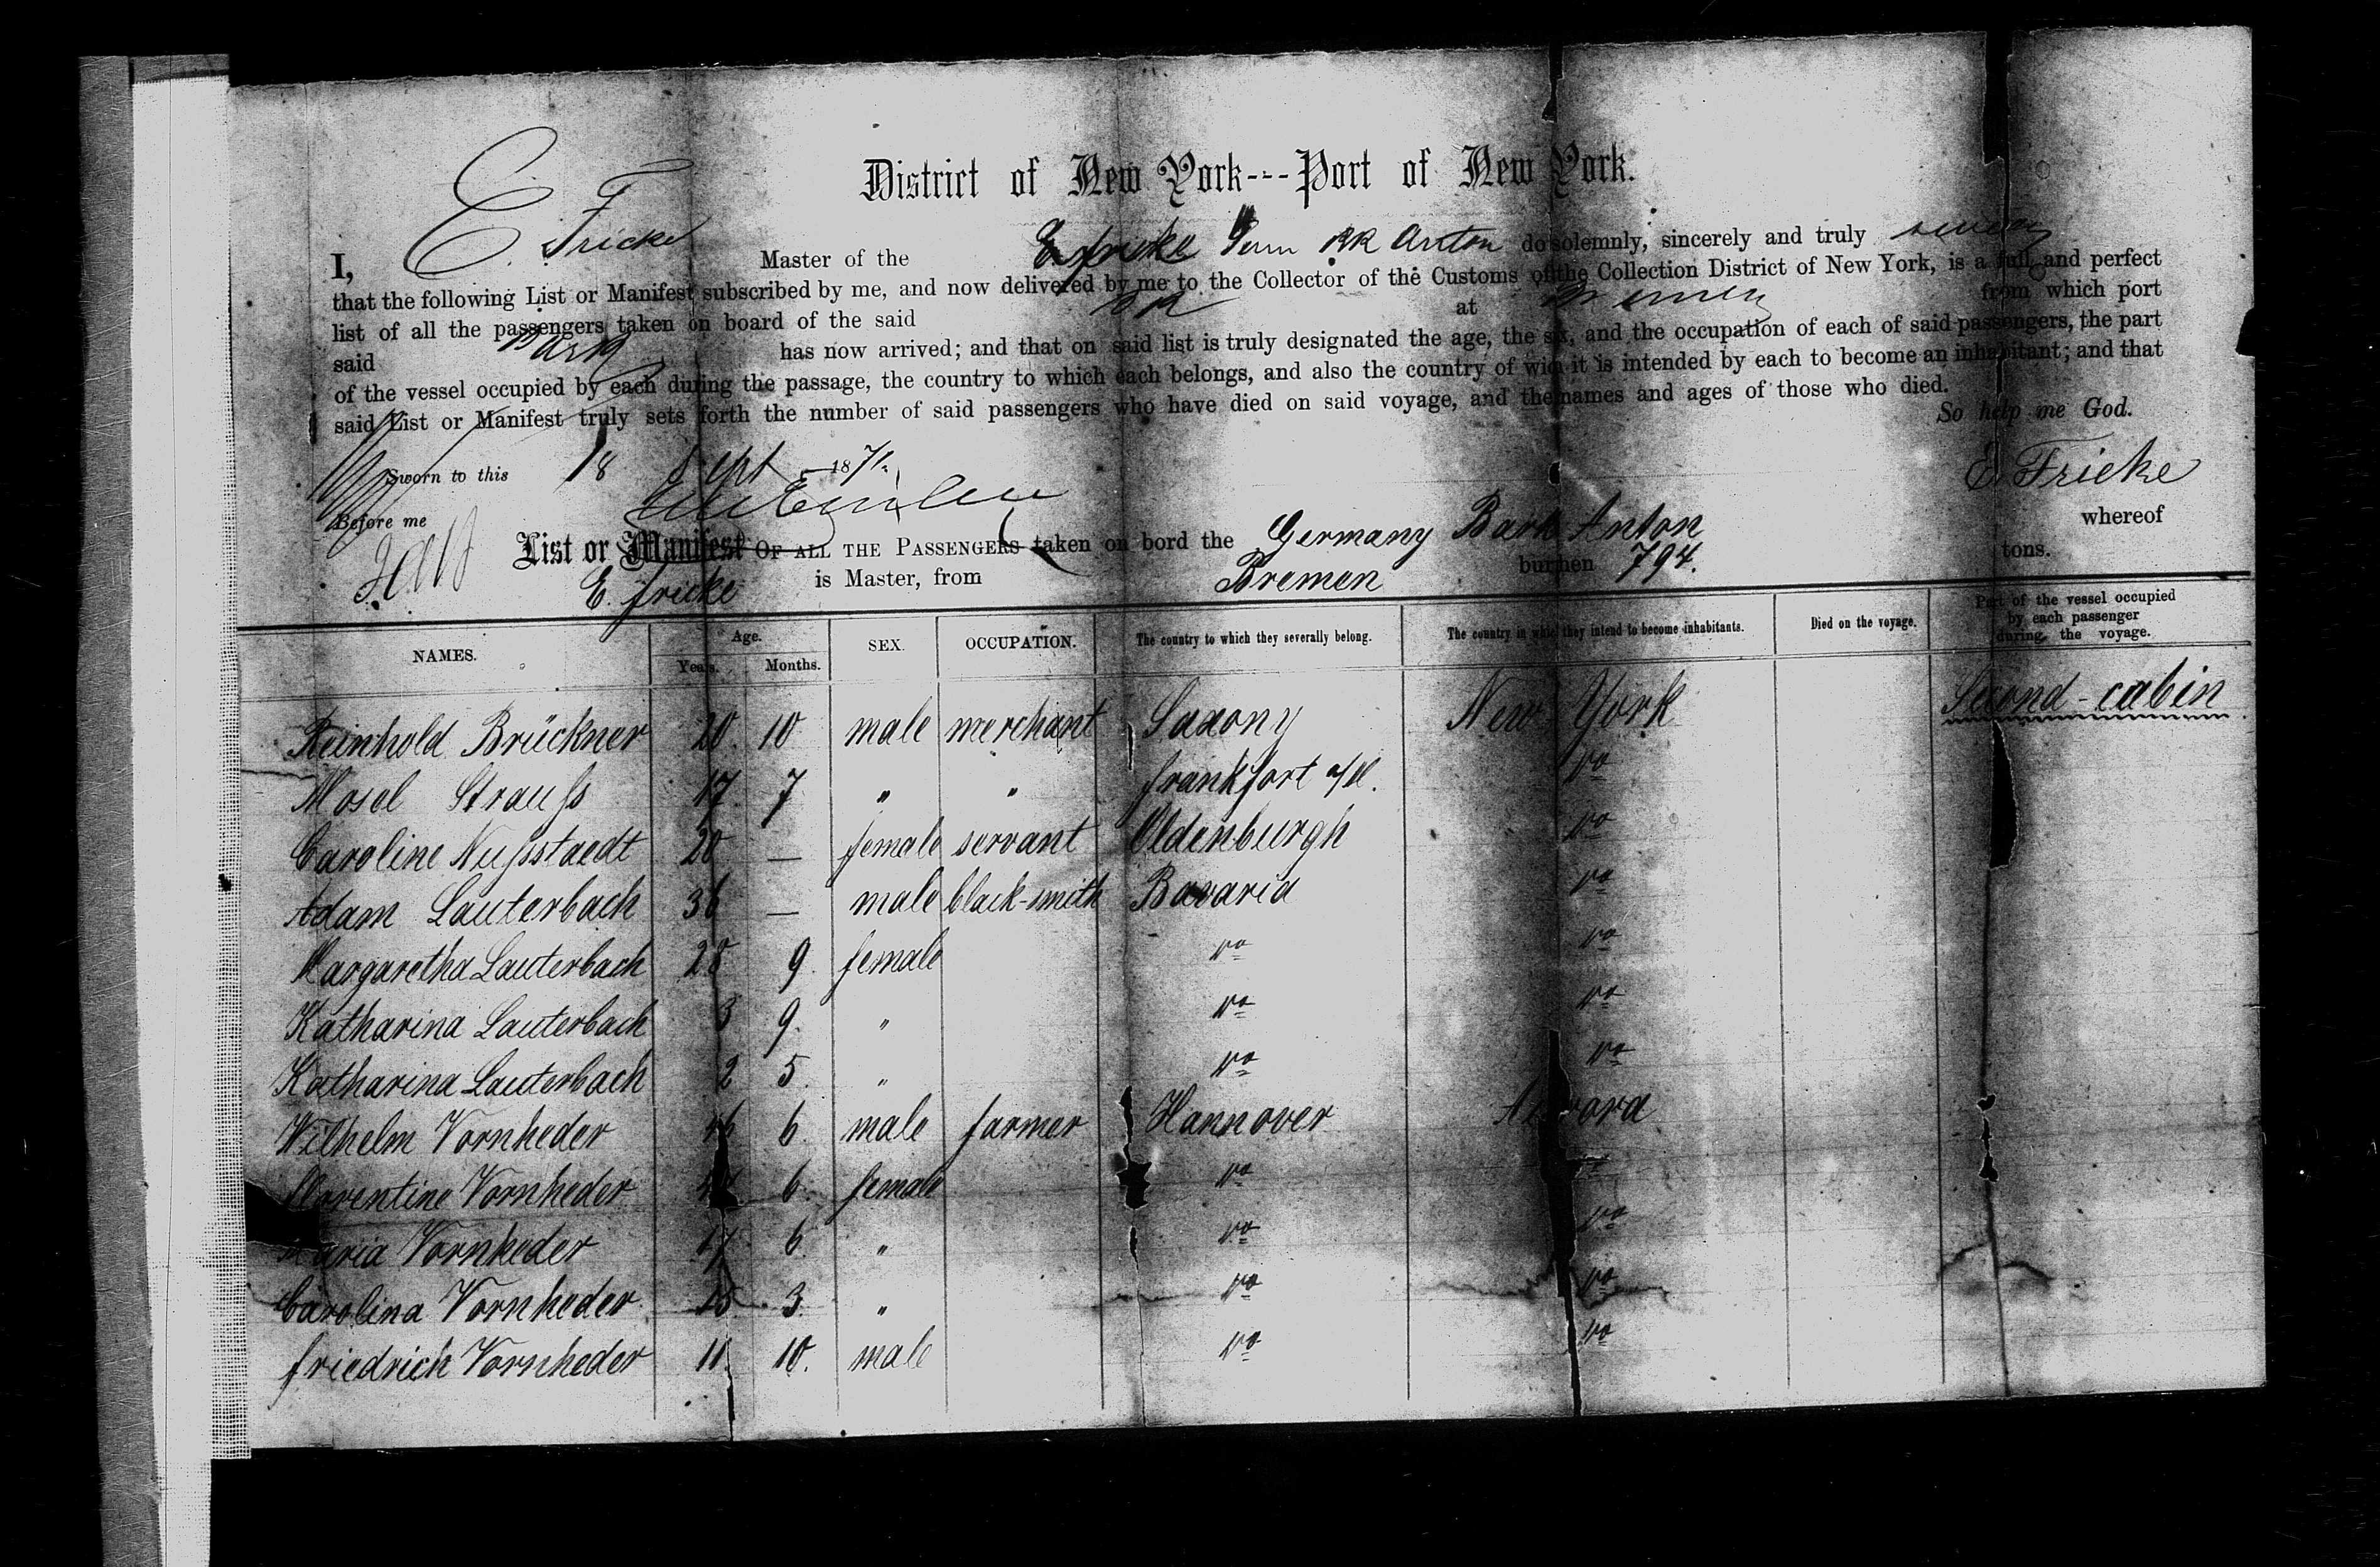 District of New York---Port of New York.
I, E. Fricke Master of the E. fricke Anton do solemnly, sincerely and truly
that the following List or Manifest subscribed by me, and now delivered by me to the Collector of the Customs of the Collection District of New York, is a full and perfect
list of all the passengers taken on board of the said at Bremen from which port
said Bark has now arrived; and that on said list is truly designated the age, the six, and the occupation of each of said passengers, the part
of the vessel occupied by each during the passage, the country to which each belongs, and also the country of wich it is intended by each to become an inhabitant; and that
said List or Manifest truly sets forth the number of said passengers who have died on said voyage, and the names and ages of those who died.
So help me God.
Sworn to this 18 Sept 1871. E. Fricke
Before me
List or Manifest OF ALL THE PASSENGERS taken on bord the Germany Bark Anton whereof
E. fricke is Master, from Bremen burthen 794. tons.
NAMES. Age. SEX. OCCUPATION. The country to which they severally belong. The country in which they intend to become inhabitants. Died on the voyage. Part of the vessel occupied by each passenger during the voyage.
Years. Months.
Reinhold Brückner 20. 10 male merchant Saxony New York Second-cabin
Mosel Strauſs 17. 7 " " frankfort a/M. do
Caroline Nuſsstaedt 20 — female servant Oldenburgh do
Adam Lauterbach — male black-smith Bavaria do
Margaretha Lauterbach 28 9. female do do
Katharina Lauterbach 3 9. " do do
Katharina Lauterbach 2 5. " do do
Wilhelm Vornheder 6. male farmer Hannover
Florentine Vornheder 6. female do do
Maria Vornheder 17 6. " do do
Carolina Vornheder 15. 3. " do do
friedrich Vornheder 11. 10. male do do